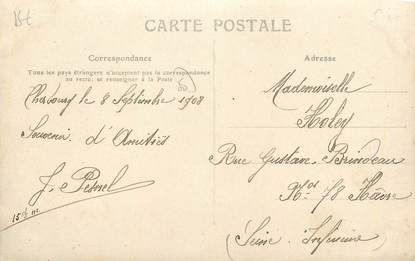 CARTE POSTALE
Correspondance
Tous les pays étrangers n'acceptent pas la correspondance
au recto, se renseigner à la Poste
Cherbourg le 8 Septembre 1908
Souvenir d'Amitiés
J. Pesnel
Adresse
Mademoiselle
Holey
Rue Gustave Brindeau
Nos 78 Hâvre
(Seine Inférieure)